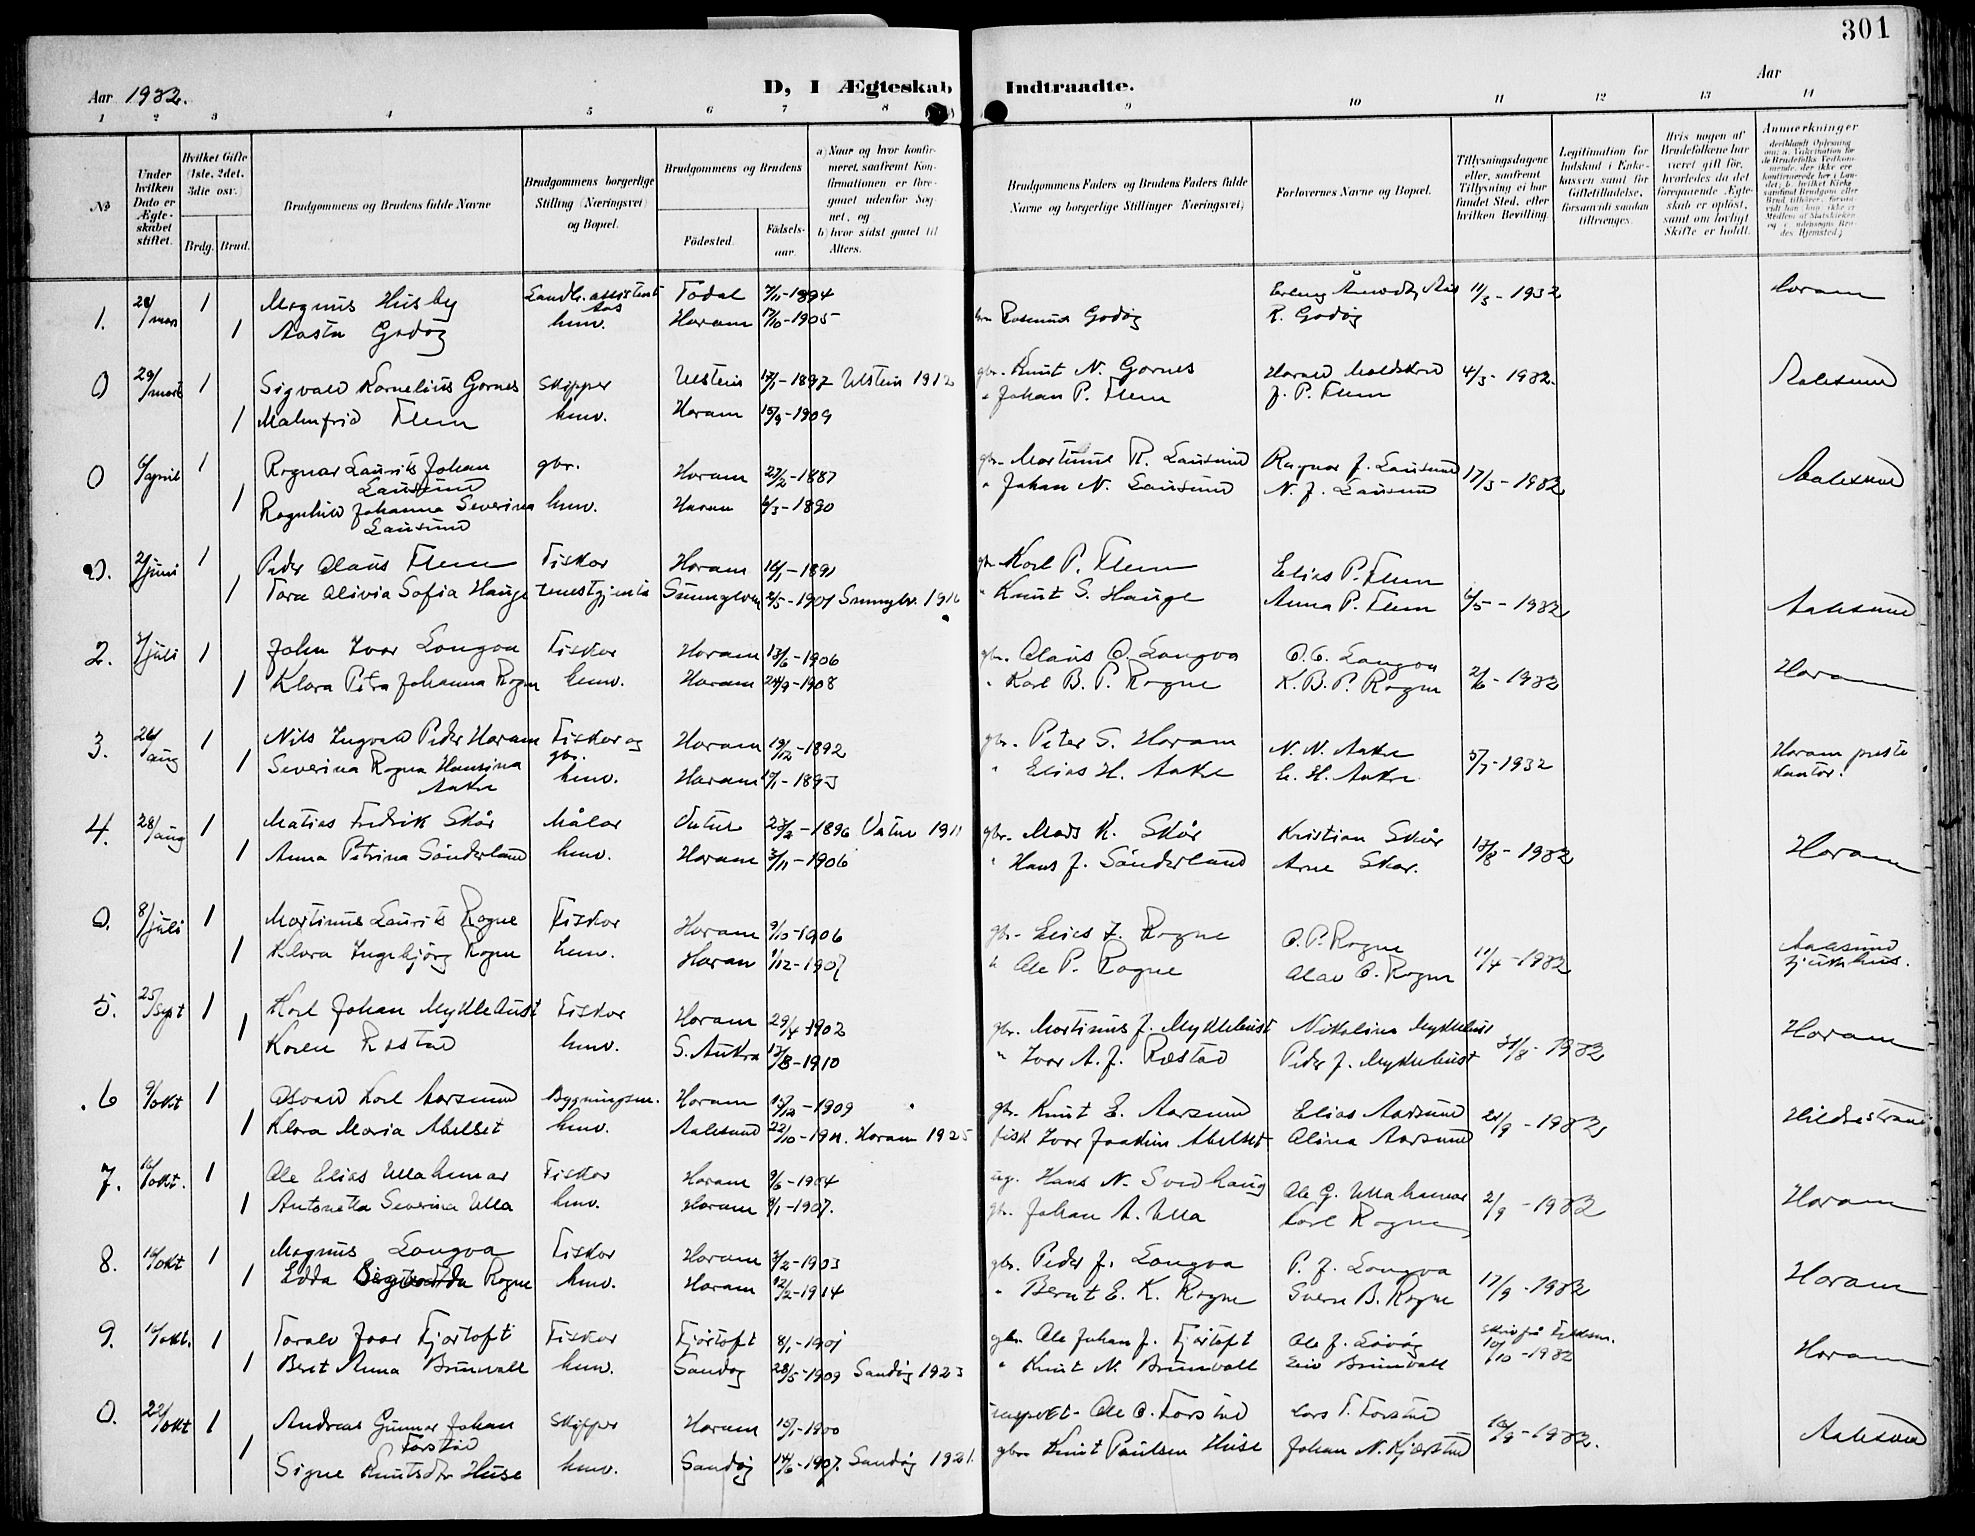 301
Aar 1932. D, I Ægteskab Indtraadte. Aar
1 2 3 4 5 6 7 8 9 10 11 12 13 14
No
Under hvilken Dato er Ægteskabet stiftet.
Hvilket Gifte (1ste, 2det, 3die osv.)
Brdg. Brud.
Brudgommens og Brudens fulde Navne
Brudgommens borgerlige Stilling (Næringsvei) og Bopæl.
Brudgommens og Brudens
Födested. Födselsaar.
a) Naar og hvor konfirmeret, saafremt Konfirmationen er foregaaet udenfor Sognet, og
b) hvor sidst gaaet til Alters.
Brudgommens Faders og Brudens Faders fulde Navne og borgerlige Stillinger (Næringsvei)
Forlovernes Navne og Bopæl.
Tillysningsdagene eller, saafremt Tillysning ei har fundet Sted, efter hvilken Bevilling.
Legitimation for Indskud i Enkekassen samt for Giftetilladelse, forsaavidt saadan tiltrænges.
Hvis nogen af Brudefolkene har været gift för, hvorledes da det foregaaende Ægteskab er oplöst, samt om lovligt Skifte er holdt.
Anmærkninger
1. 28/mars 1 Magnus Husby Landb. assistent Todal 7/11-1894 Erling Åmodt, Aas 11/3-1932 Haram
Aas
1 Aasta Godøy husv. Haram 17/10-1905 Rasmus Godøy R. Godøy
0 29/mars 1 Sigvald Kornelius Garnes Skipper Ulstein 17/1-1897 Ulstein 1912 gbr. Knut N. Garnes Harald Moldskred 4/3-1932. Aalesund
1 Malmfrid Flem husv. Haram 15/9-1909 " Johan P. Flem J. P. Flem
0 6/april 1 Ragnar Laurits Johan gbr. Haram 27/2-1887 gbr. Martinus R. Lausund Ragnar J. Lausund 17/3-1932 Aalesund
Lausund
1 Ragnhild Johanna Severina husv. Haram 6/3-1890 " Johan N. Lausund N. J. Lausund
Lausund
0. 2/juni 1 Peder Olaus Flem Fiskar Haram 16/1-1891 gbr. Karl P. Flem Elias P. Flem
1 Tora Olivia Sofia Hauge tenestgjenta Sunnylven 2/5-1901 Sunnylv. 1916 " Knut S. Hauge Anna P. Flem 6/5-1932 Aalesund
2. 2/juli 1 John Ivar Longva Fiskar Haram 13/6-1906 gbr. Olaus O. Longva O. O. Longva 2/6-1932 Haram
1 Klara Petra Johanna Rogne husv. Haram 24/9-1908 " Karl B. P. Rogne K. B. P. Rogne
3. 26/aug 1 Nils Ingvald Peder Haram Fiskar og gbr. Haram 19/12-1892 gbr. Peter S. Haram N. N. Aakre 5/7-1932 Haram preste
1 Severina Ragna Hansina Aakre husv. Haram 17/1-1893 " Elias H. Aakre E. H. Aakre kontor.
4. 28/aug 1 Matias Fredrik Skår Målar Vatne 23/2-1896 Vatne 1911 gbr. Mads K. Skår Kristian Skår 13/8-1932 Haram
1 Anna Petrina Sønderland husv. Haram 3/11-1906 " Hans J. Sønderland Arne Skår.
0. 8/juli 1 Martinus Laurits Rogne Fiskar Haram 9/10-1906 gbr. Elias I. Rogne O. P. Rogne 11/4-1932 Aalesund
1 Klara Ingebjørg Rogne husv. Haram 1/12-1907 " Ole P. Rogne Olav O. Rogne sjukehus.
5. 25/sept 1 Karl Johan Myklebust Fiskar Haram 29/4-1902 gbr. Martinus J. Myklebust Nikolina Myklebust 31/8-1932 Haram
1 Karen Røstad husv. S. Aukra 13/8-1910 " Ivar A. J. Røstad Peder J. Myklebust
6 9/okt 1 Osvald Karl Aarsund Bygningsm. Haram 15/12-1909 gbr. Knut E. Aarsund Elias Aarsund 21/9-1932 Hildrestrand
1 Klara Maria Abelset husv. Aalesund 22/10-1911. Haram 1925 fisk Ivar Joakim Abelset Olina Aarsund
7. 16/okt. 1 Ole Elias Ullahammar Fiskar Haram 9/6-1904 Hans N. Svedhaug Ole G. Ullahammar 2/9-1932 Haram
1 Antonetta Severina Ulla husv. Haram 8/1-1907. gbr. Johan A. Ulla Karl Rogne
8. 16/okt 1 Magnus Longva Fiskar Haram 3/2-1903 gbr. Peder J. Longva P. J. Longva 17/9-1932 Haram
1 Edda Rogne husv. Haram 12/2-1914 " Bernt E. K. Rogne Sverre B. Rogne
9. 16/okt. 1 Torald Joar Fjørtoft Fiskar Fjørtoft 8/1-1901 gbr. Ole Johan J. Fjørtoft Ole J. Løvøy 10/10-1932 Haram
1 Beret Anna Brunvoll husv. Sandøy 28/5-1909 Sandøy 1923 " Knut N. Brunvoll Brunvoll
0. 22/okt 1 Andreas Gunnar Johan Skipper Haram 15/1-1900 Ole O. Farstad Lars T. Farstad 10/9-1932. Aalesund
Farstad
1 Signe Knutsdtr Huse husv. Sandøy 14/6-1907. Sandøy 1921. gbr. Knut Paulsen Huse Johan N. Kjærstad